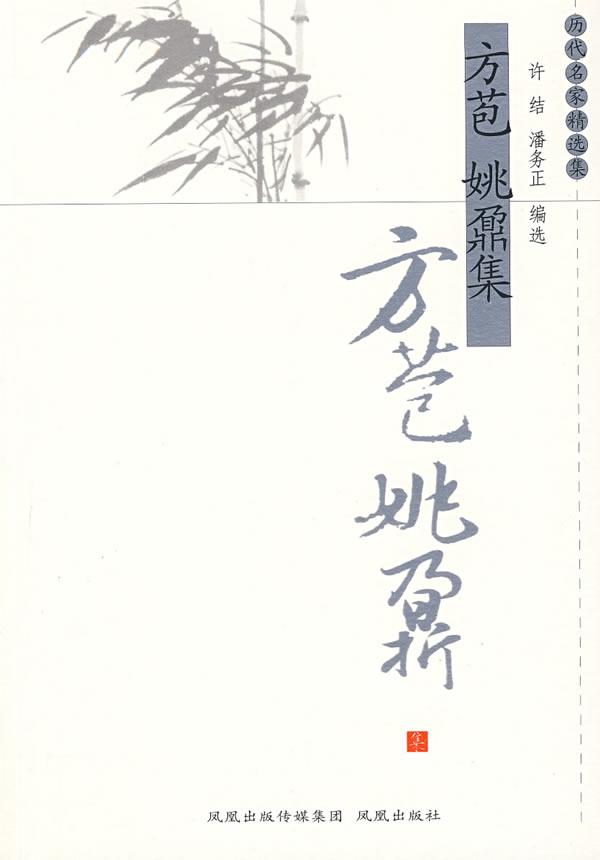 历代名家精选集
许结 潘务正 编选
方苞 姚鼐集
方苞姚鼐
集
凤凰出版传媒集团 凤凰出版社